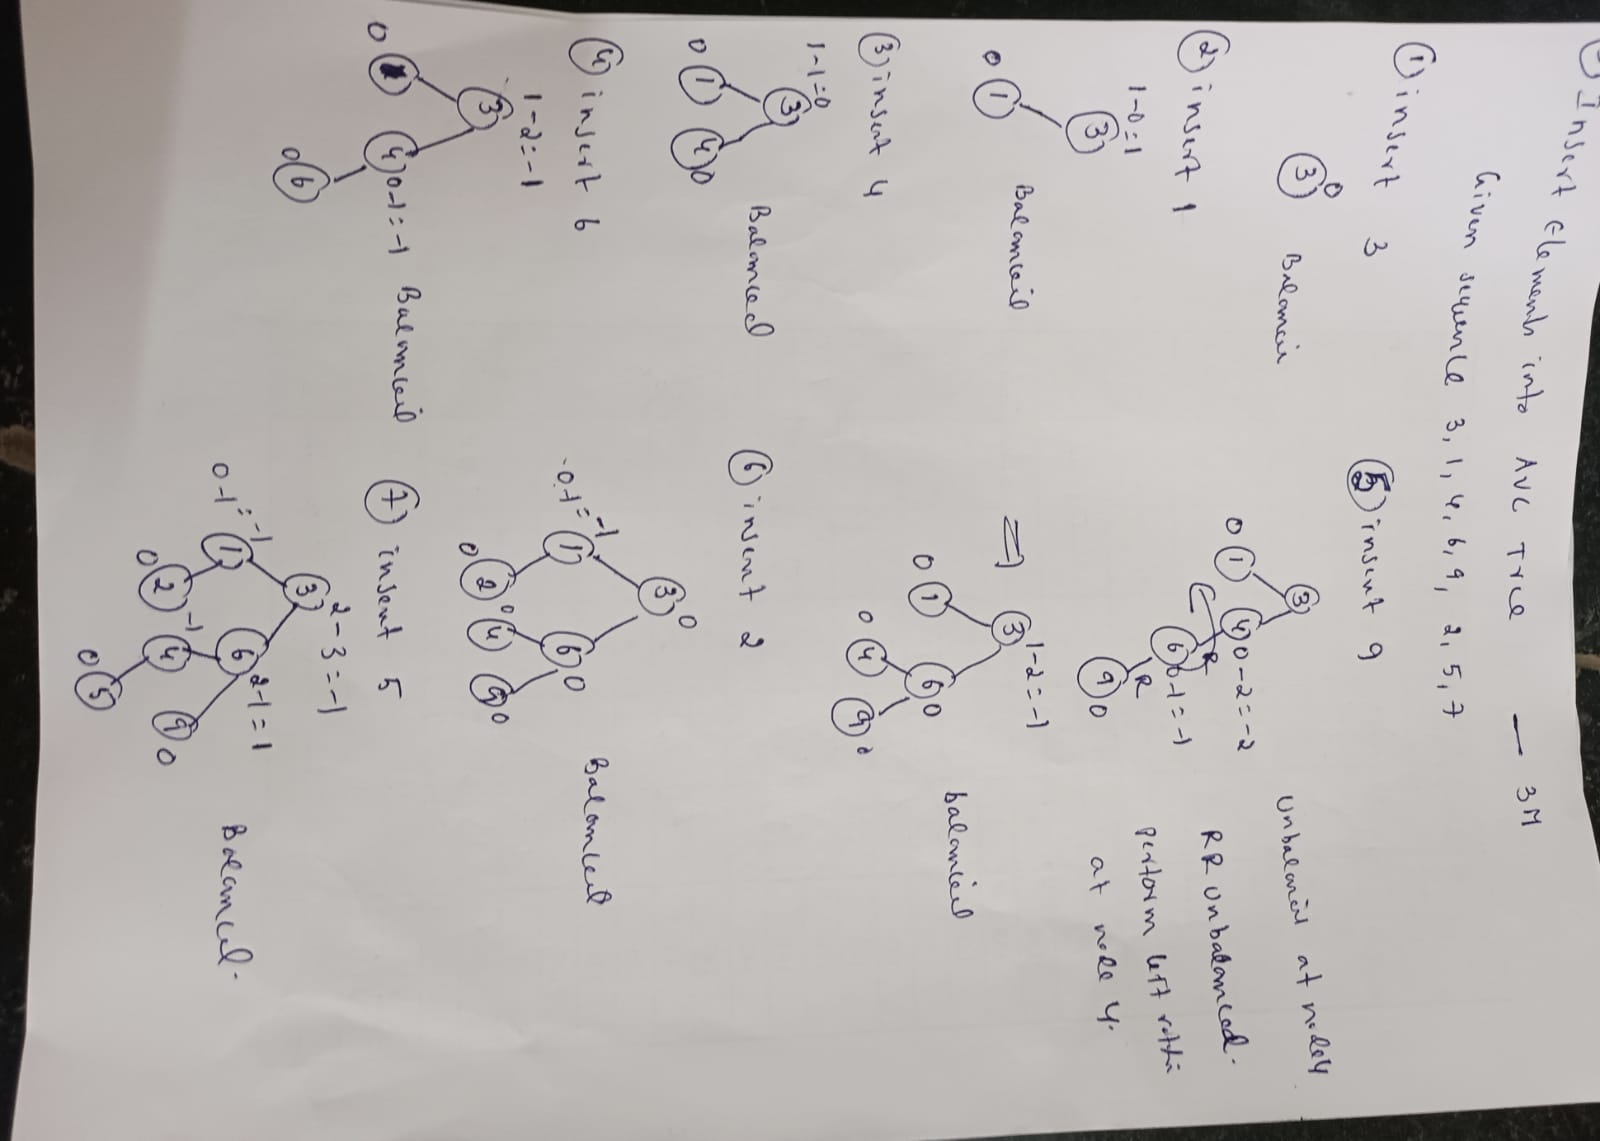 Insert Elements into AVL Tree — 3M
Given sequence 3, 1, 4, 6, 9, 2, 5, 7
① insert 3
3 0
② insert 1
1-0=1
3
0 1
Balanced
③ insert 4
1-1=0
3
0 1
4 0
Balanced
④ insert 6
1-2=-1
3
0
4 0-1=-1
0 6
Balanced
⑤ insert 9
3
0 1
4 0-2=-2
R
6 0-1=-1
R
9 0
Unbalancd at node 4
RR Unbalanced.
perform left
at node 4.
⇒
3 1-2=-1
0 1
6 0
0 4
9 0
balanced
⑥ insert 2
3 0
0-1=-1 1
6 0
0 2
0 4
9 0
Balanced
⑦ insert 5
3 2-3=-1
0-1=-1 1
6 2-1=1
0 2
-1 4
9 0
0 5
Balanced.